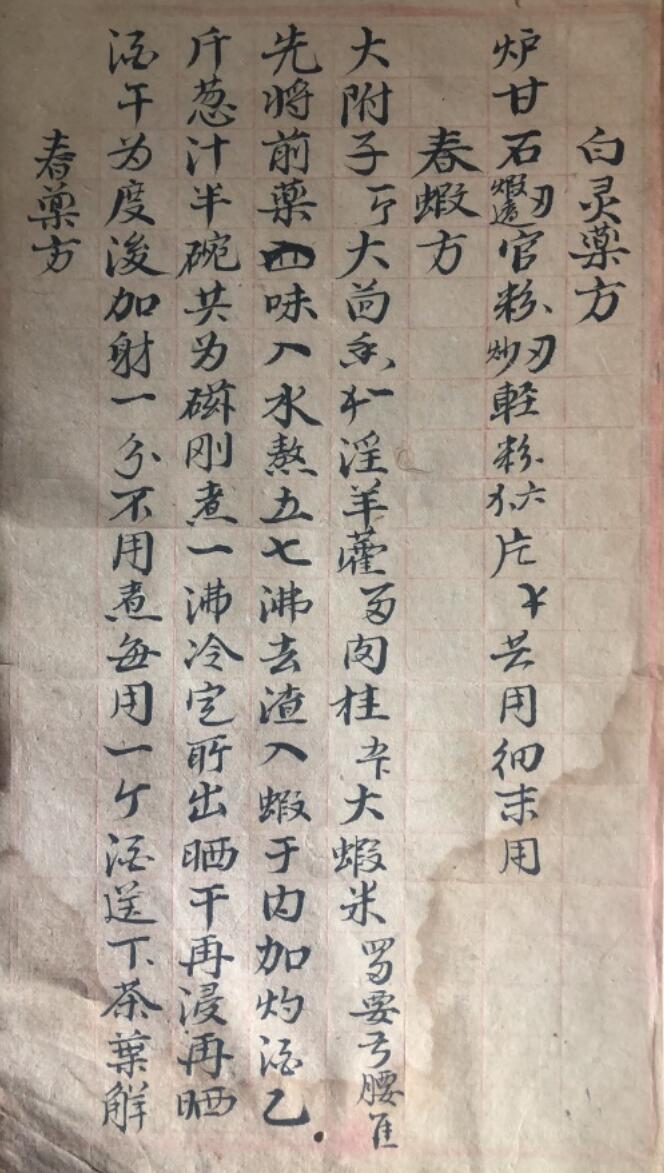 白灵藥方
炉甘石煆透刄官粉炒刄軽粉片共用细末用
春蝦方
大附子大茴香淫羊藿肉桂大蝦米要弓腰
先將前藥四味入水熬五七沸去渣入蝦于内加灼酒乙
斤葱汁半碗共为磁刚煮一沸冷定取出晒干再浸再晒
酒干为度後加射一分不用煮每用一个酒送下茶葉解
春藥方